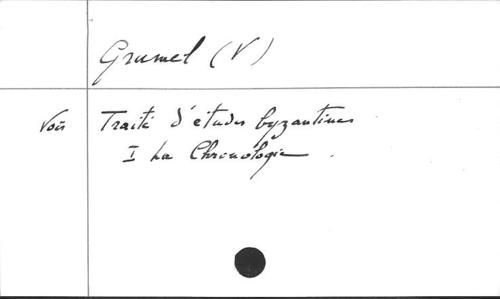 Grumel (V)
Voir Traité d'études byzantines
I La Chronologie.